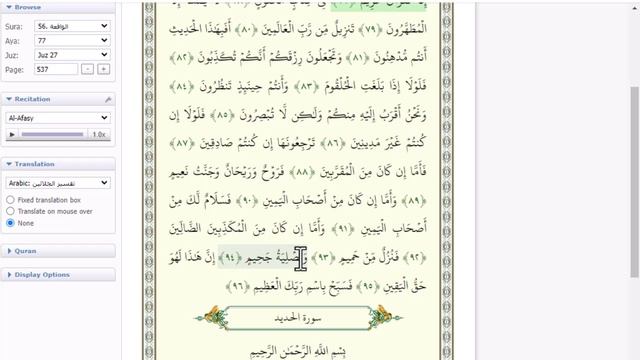 Browse
Sura: 56. الواقعة
Aya: 77
Juz: Juz 27
Page: 537
Recitation
Al-Afasy
1.0x
Translation
Arabic: تفسير الجلالين
Fixed translation box
Translate on mouse over
None
Quran
Display Options
الْمُطَهَّرُونَ ﴿٧٩﴾ تَنزِيلٌ مِّن رَّبِّ الْعَالَمِينَ ﴿٨٠﴾ أَفَبِهَٰذَا الْحَدِيثِ
أَنتُم مُّدْهِنُونَ ﴿٨١﴾ وَتَجْعَلُونَ رِزْقَكُمْ أَنَّكُمْ تُكَذِّبُونَ ﴿٨٢﴾
فَلَوْلَا إِذَا بَلَغَتِ الْحُلْقُومَ ﴿٨٣﴾ وَأَنتُمْ حِينَئِذٍ تَنظُرُونَ ﴿٨٤﴾
وَنَحْنُ أَقْرَبُ إِلَيْهِ مِنكُمْ وَلَٰكِن لَّا تُبْصِرُونَ ﴿٨٥﴾ فَلَوْلَا إِن
كُنتُمْ غَيْرَ مَدِينِينَ ﴿٨٦﴾ تَرْجِعُونَهَا إِن كُنتُمْ صَادِقِينَ ﴿٨٧﴾
فَأَمَّا إِن كَانَ مِنَ الْمُقَرَّبِينَ ﴿٨٨﴾ فَرَوْحٌ وَرَيْحَانٌ وَجَنَّتُ نَعِيمٍ
﴿٨٩﴾ وَأَمَّا إِن كَانَ مِنْ أَصْحَابِ الْيَمِينِ ﴿٩٠﴾ فَسَلَامٌ لَّكَ مِنْ
أَصْحَابِ الْيَمِينِ ﴿٩١﴾ وَأَمَّا إِن كَانَ مِنَ الْمُكَذِّبِينَ الضَّالِّينَ
﴿٩٢﴾ فَنُزُلٌ مِّنْ حَمِيمٍ ﴿٩٣﴾ وَتَصْلِيَةُ جَحِيمٍ ﴿٩٤﴾ إِنَّ هَٰذَا لَهُوَ
حَقُّ الْيَقِينِ ﴿٩٥﴾ فَسَبِّحْ بِاسْمِ رَبِّكَ الْعَظِيمِ ﴿٩٦﴾
سورة الحديد
بِسْمِ اللَّهِ الرَّحْمَٰنِ الرَّحِيمِ